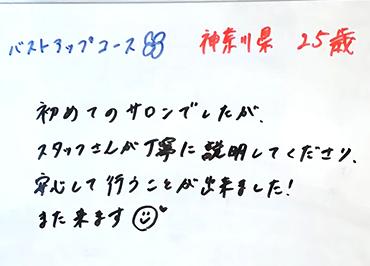 バストアップコース 神奈川県 25歳
初めてのサロンでしたが、
スタッフさんが丁寧に説明してくださり、
安心して行うことが出来ました!
また来ます